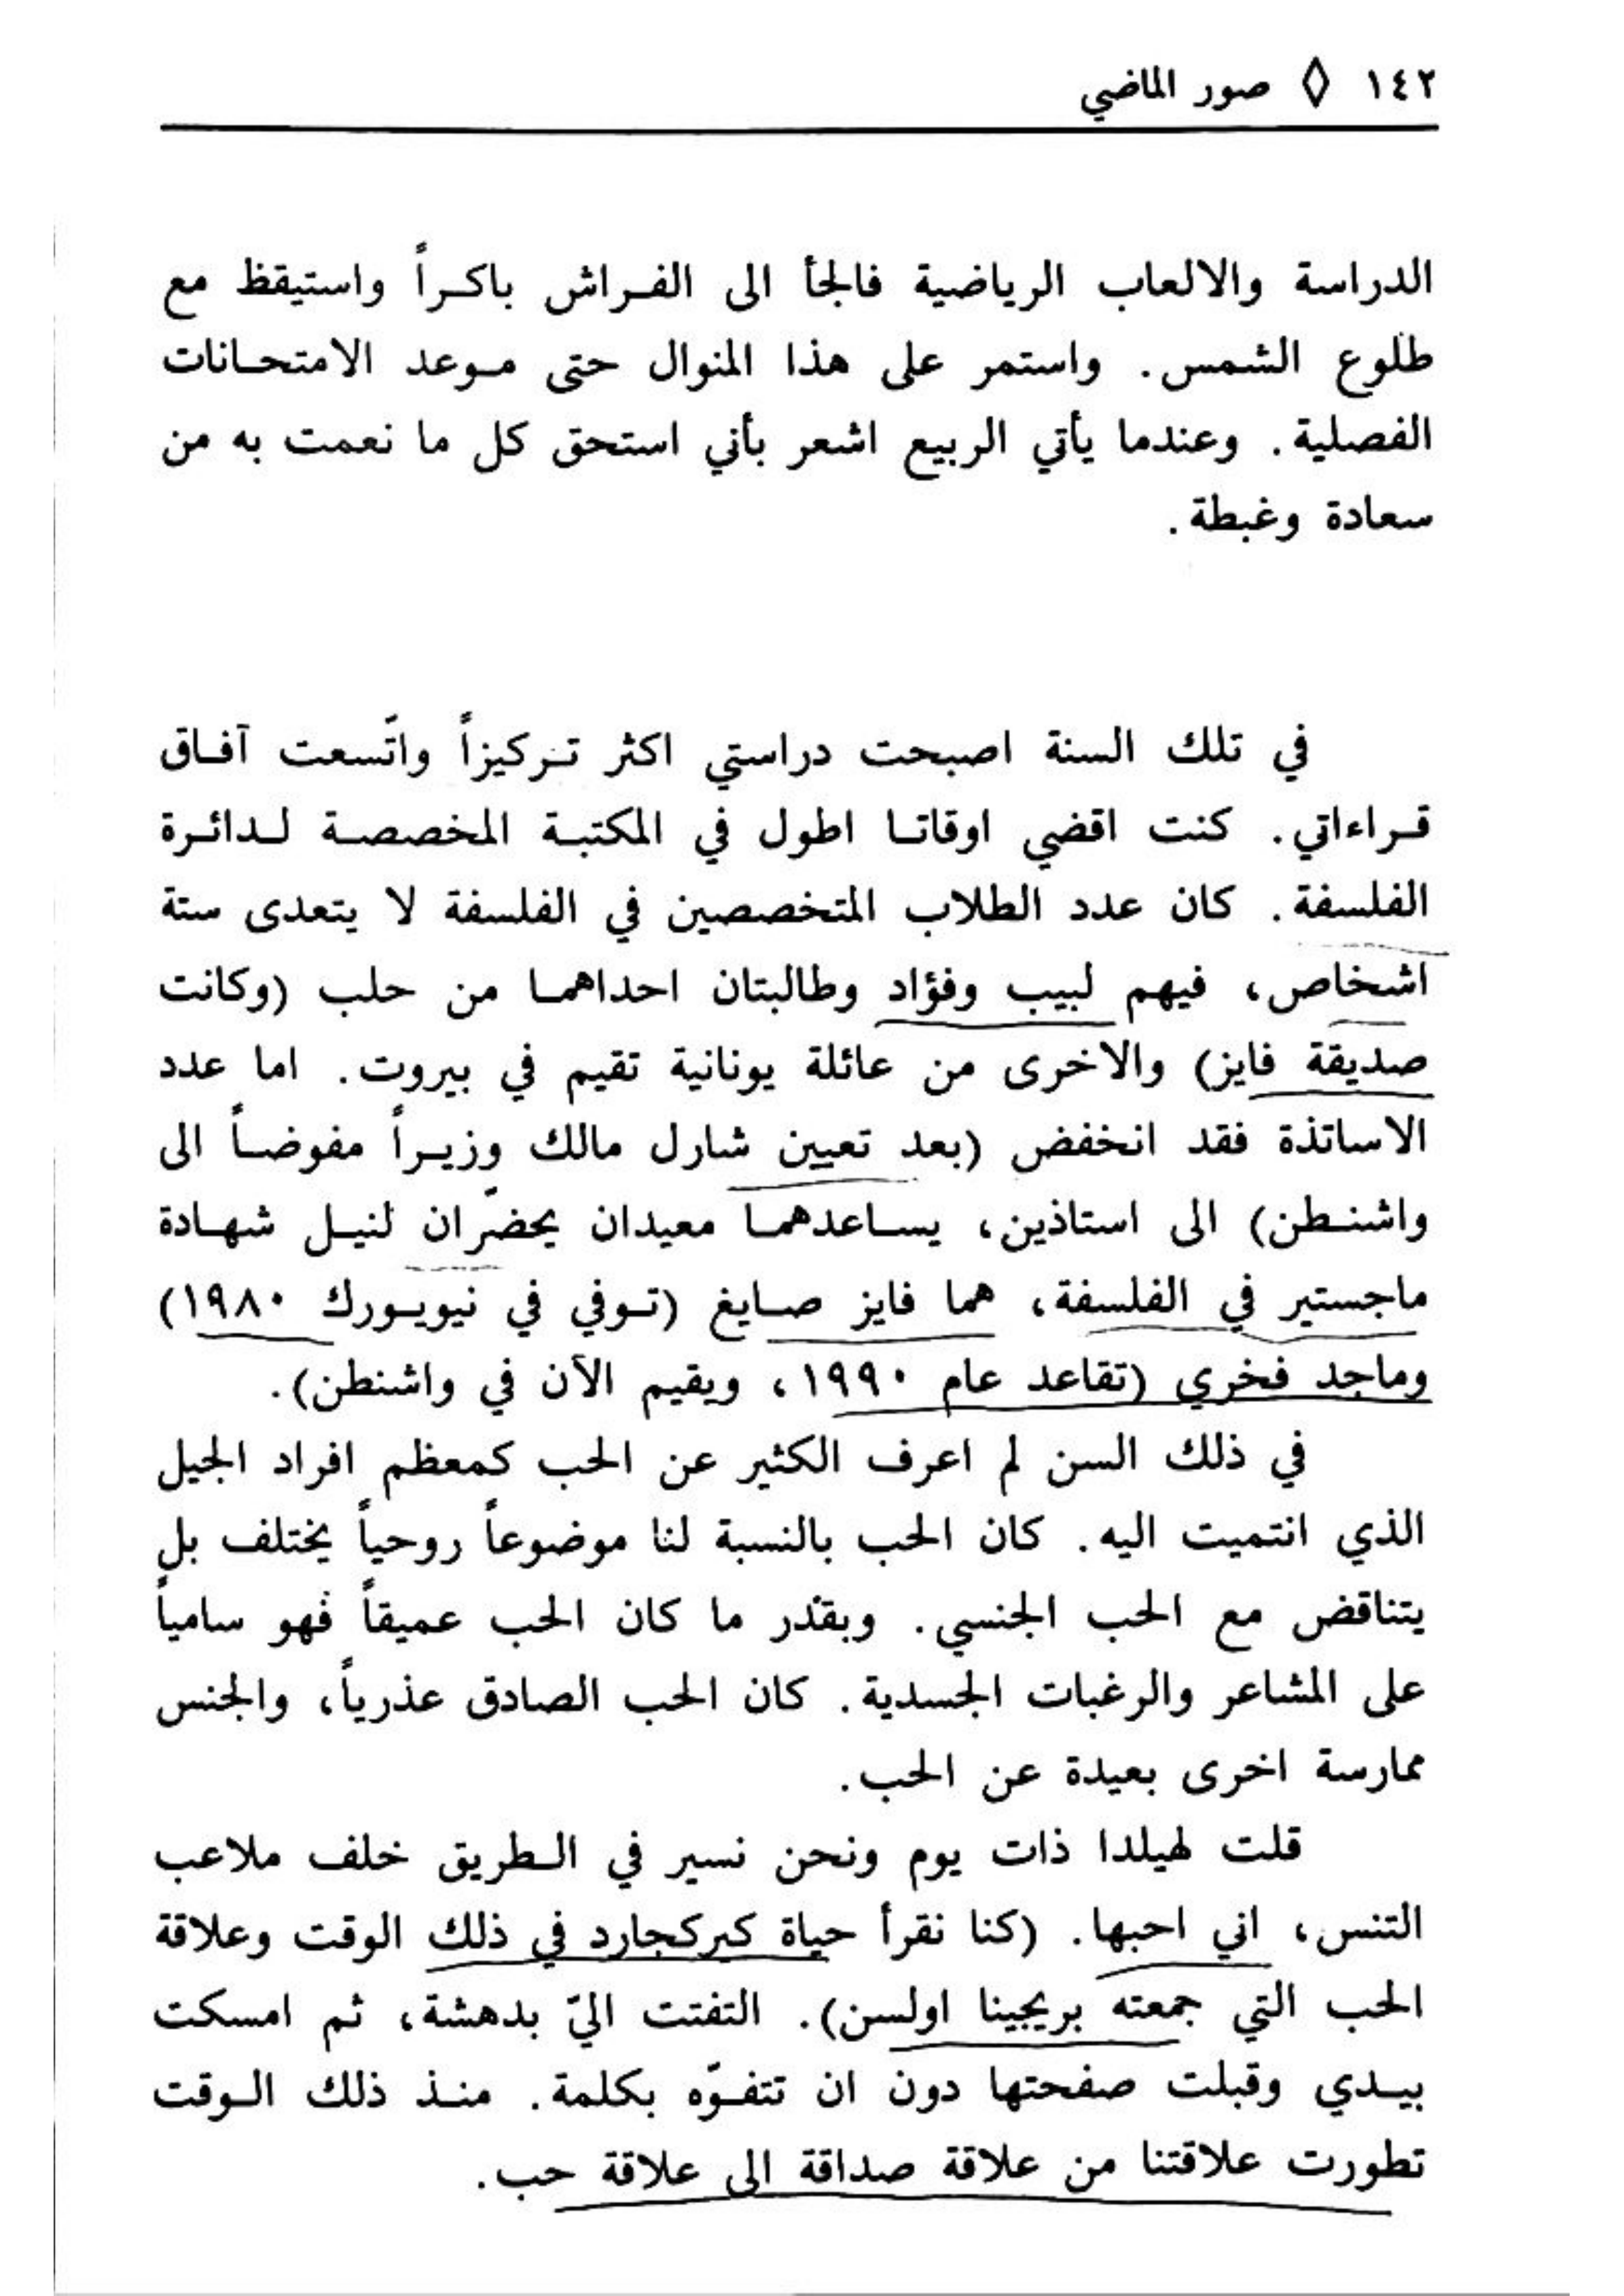 ١٤٢ ◊ صور الماضي
الدراسة والالعاب الرياضية فالجأ الى الفراش باكراً واستيقظ مع
طلوع الشمس. واستمر على هذا المنوال حتى موعد الامتحانات
الفصلية. وعندما يأتي الربيع اشعر بأني استحق كل ما نعمت به من
سعادة وغبطة.
في تلك السنة اصبحت دراستي اكثر تركيزاً واتّسعت آفاق
قراءاتي. كنت اقضي اوقاتا اطول في المكتبة المخصصة لدائرة
الفلسفة. كان عدد الطلاب المتخصصين في الفلسفة لا يتعدى ستة
اشخاص، فيهم لبيب وفؤاد وطالبتان احداهما من حلب (وكانت
صديقة فايز) والاخرى من عائلة يونانية تقيم في بيروت. اما عدد
الاساتذة فقد انخفض (بعد تعيين شارل مالك وزيراً مفوضاً الى
واشنطن) الى استاذين، يساعدهما معيدان يحضّران لنيل شهادة
ماجستير في الفلسفة، هما فايز صايغ (توفي في نيويورك ١٩٨٠)
وماجد فخري (تقاعد عام ١٩٩٠، ويقيم الآن في واشنطن).
في ذلك السن لم اعرف الكثير عن الحب كمعظم افراد الجيل
الذي انتميت اليه. كان الحب بالنسبة لنا موضوعاً روحياً يختلف بل
يتناقض مع الحب الجنسي. وبقدر ما كان الحب عميقاً فهو سامياً
على المشاعر والرغبات الجسدية. كان الحب الصادق عذرياً، والجنس
ممارسة اخرى بعيدة عن الحب.
قلت لهيلدا ذات يوم ونحن نسير في الطريق خلف ملاعب
التنس، اني احبها. (كنا نقرأ حياة كيركجارد في ذلك الوقت وعلاقة
الحب التي جمعته بريجينا اولسن). التفتت اليّ بدهشة، ثم امسكت
بيدي وقبلت صفحتها دون ان تتفوّه بكلمة. منذ ذلك الوقت
تطورت علاقتنا من علاقة صداقة الى علاقة حب.